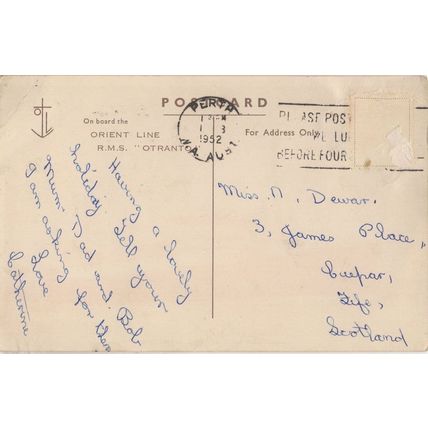 POSTCARD
On board the
ORIENT LINE
R.M.S. "OTRANTO"
For Address Only
PERTH
1952
PLEASE POST
BEFORE FOUR
Having a lovely
holiday. Tell your
Mum, Dad and Bob
I am asking for them
Love
Catherine
Miss N. Dewar,
3, James Place,
Cupar,
Fife,
Scotland